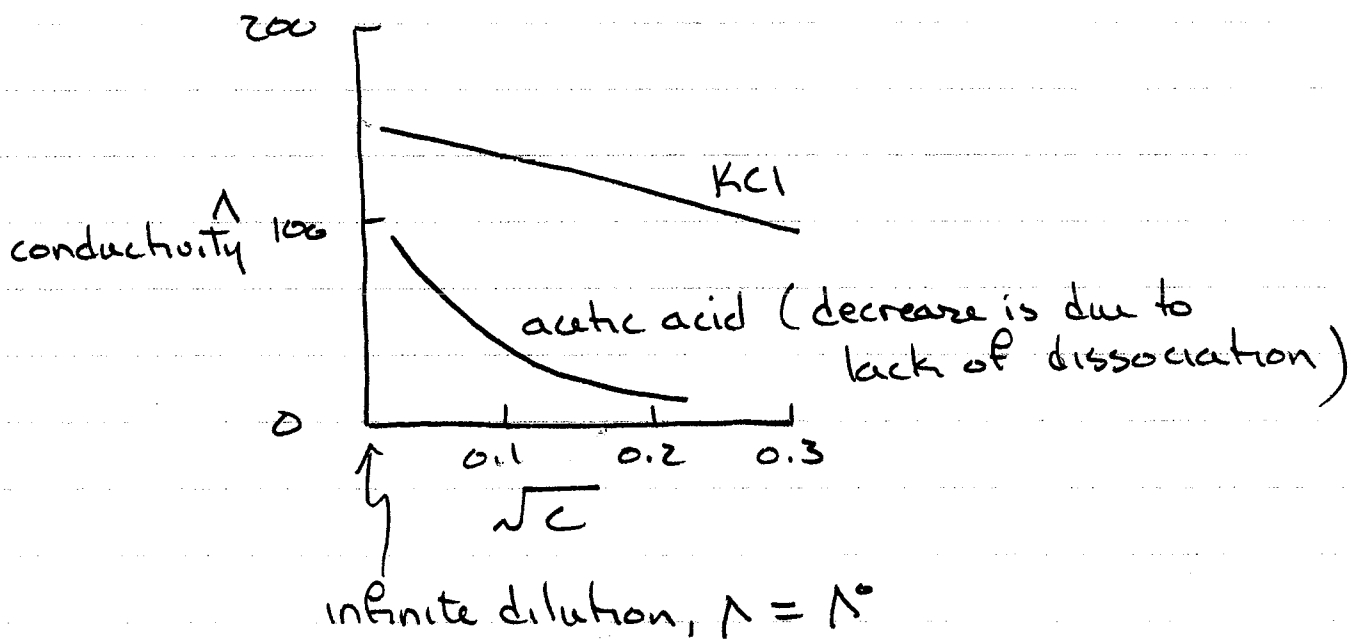 200
KCl
Λ
conductivity 100
acetic acid (decrease is due to
lack of dissociation)
0
0.1 0.2 0.3
√c
infinite dilution, Λ = Λ°